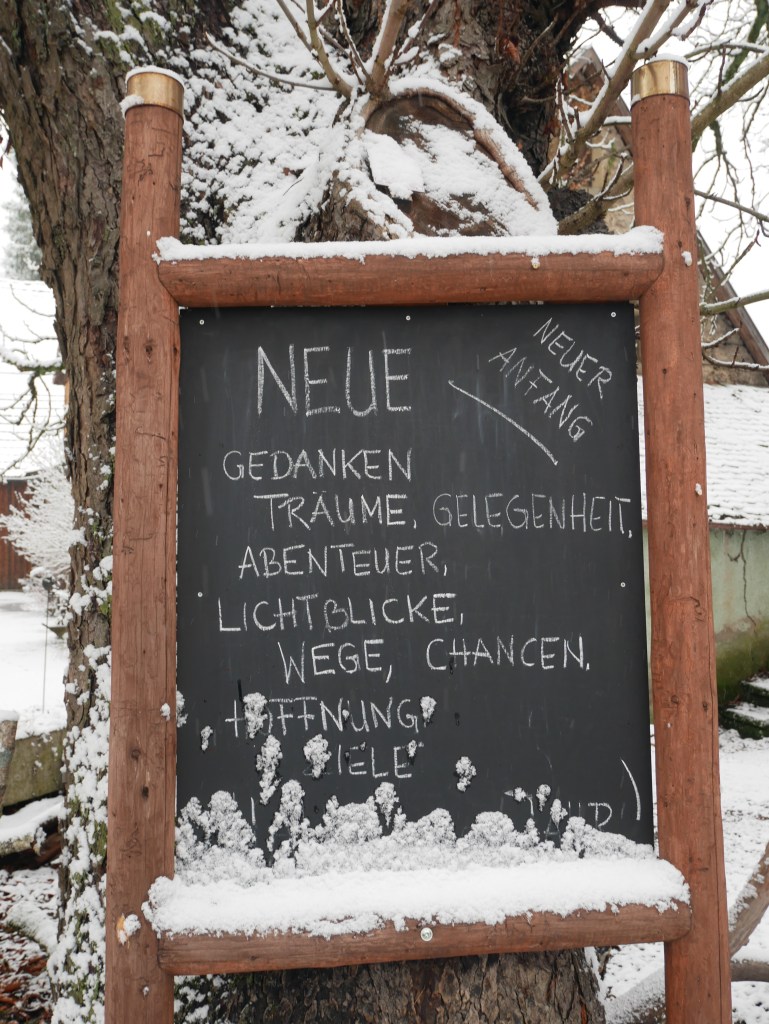 NEUE
NEUER
ANFANG
GEDANKEN
TRÄUME, GELEGENHEIT,
ABENTEUER,
LICHTBLICKE,
WEGE, CHANCEN,
HOFFNUNG
ZIELE